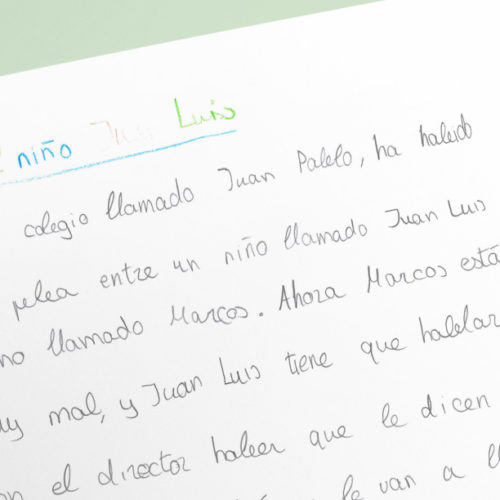 niño Juan Luis
colegio llamado Juan Pablo, ha habido
pelea entre un niño llamado Juan Luis
no llamado Marcos. Ahora Marcos está
uy mal, y Juan Luis tiene que hablar
on el director haber que le dicen
le van a ll